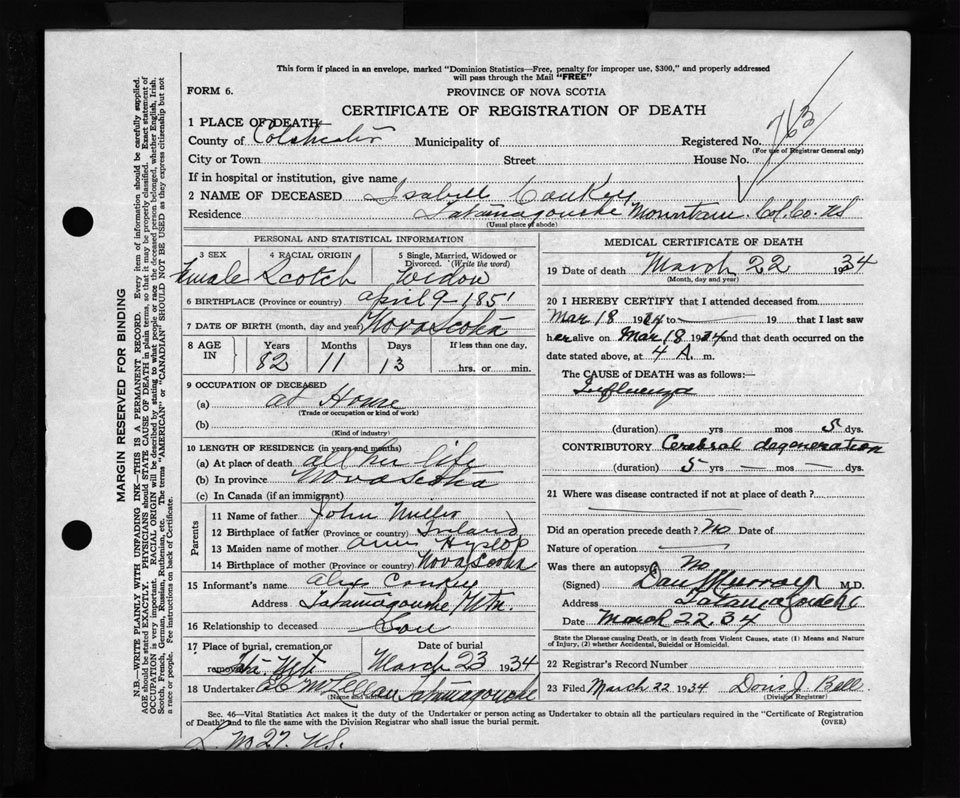 This form if placed in an envelope, marked "Dominion Statistics—Free, penalty for improper use, $300," and properly addressed
will pass through the Mail "FREE"
FORM 6.
PROVINCE OF NOVA SCOTIA
CERTIFICATE OF REGISTRATION OF DEATH
1 PLACE OF DEATH
County of Colchester Municipality of Registered No. 763
(For use of Registrar General only)
City or Town Street House No.
If in hospital or institution, give name
2 NAME OF DECEASED Isabell Conkey
Residence Tatamagouche Mountain. Col. Co. NS
(Usual place of abode)
PERSONAL AND STATISTICAL INFORMATION
3 SEX 4 RACIAL ORIGIN 5 Single, Married, Widowed or
Divorced. (Write the word)
Female Scotch Widow
6 BIRTHPLACE (Province or country) April 9 - 1851
7 DATE OF BIRTH (month, day and year) Nova Scotia
8 AGE IN Years Months Days If less than one day,
82 11 13 hrs. or min.
9 OCCUPATION OF DECEASED
(a) at Home
(Trade or occupation or kind of work)
(b)
(Kind of industry)
10 LENGTH OF RESIDENCE (in years and months)
(a) At place of death all her life
(b) In province Nova Scotia
(c) In Canada (if an immigrant)
Parents
11 Name of father John Miller
12 Birthplace of father (Province or country) Ireland
13 Maiden name of mother Ann Hyslop
14 Birthplace of mother (Province or country) Nova Scotia
15 Informant's name Alex Conkey
Address Tatamagouche Mtn.
16 Relationship to deceased Son
17 Place of burial, cremation or Date of burial
removal Mt. March 23 1934
18 Undertaker McLellan Tatamagouche
MEDICAL CERTIFICATE OF DEATH
19 Date of death March 22 1934
(Month, day and year)
20 I HEREBY CERTIFY that I attended deceased from
Mar 18 1934 to — 19 that I last saw
her alive on Mar 18 1934 and that death occurred on the
date stated above, at 4 A. m.
The CAUSE of DEATH was as follows:—
Influenza
(duration) yrs mos 5 dys.
CONTRIBUTORY Cerebral degeneration
(duration) 5 yrs — mos — dys.
21 Where was disease contracted if not at place of death?
Did an operation precede death? No Date of
Nature of operation
Was there an autopsy? No
(Signed) Dan Murray M.D.
Address Tatamagouche
Date March 22. 34
State the Disease causing Death, or in death from Violent Causes, state (1) Means and Nature
of Injury, (2) whether Accidental, Suicidal or Homicidal.
22 Registrar's Record Number
23 Filed March 22 1934 Doris J. Bell
(Division Registrar)
Sec. 46—Vital Statistics Act makes it the duty of the Undertaker or person acting as Undertaker to obtain all the particulars required in the "Certificate of Registration
of Death" and to file the same with the Division Registrar who shall issue the burial permit. (OVER)
MARGIN RESERVED FOR BINDING
N.B.—WRITE PLAINLY WITH UNFADING INK—THIS IS A PERMANENT RECORD. Every item of information should be carefully supplied.
AGE should be stated EXACTLY. PHYSICIANS should STATE CAUSE OF DEATH in plain terms, so that it may be properly classified. Exact statement of
OCCUPATION is very important. RACIAL ORIGIN will be described by stating to what people or race the deceased person belonged, whether English, Irish,
Scotch, French, German, Russian, Ruthenian, etc. The terms "AMERICAN" or "CANADIAN" SHOULD NOT BE USED as they express citizenship but not
a race or people. Fee instructions on back of Certificate.